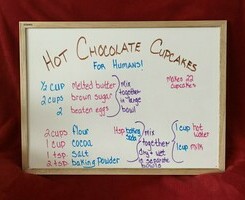 HOT CHOCOLATE CUPCAKES
FOR HUMANS!
Makes 22
cupcakes
1/2 cup melted butter
2 cups brown sugar
2 beaten eggs
mix
together
in large
bowl
2 cups flour
1 cup cocoa
1 tsp salt
2 tsp baking powder
1 tsp baking
soda
mix
together
dry & wet
in separate
bowls
1 cup hot
water
1 cup milk